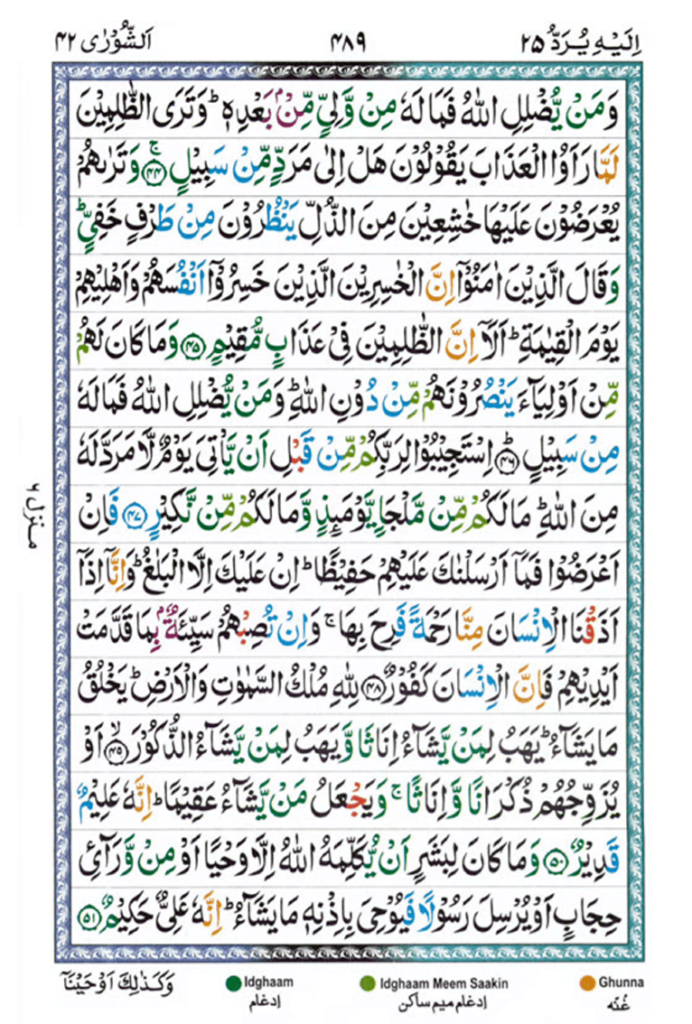 اِلَيْهِ يُرَدُّ ٢٥ ٤٨٩ اَلشُّوْرٰى ٤٢
وَمَنْ يُّضْلِلِ اللّٰهُ فَمَا لَهٗ مِنْ وَّلِيٍّ مِّنْۢ بَعْدِهٖ ؕ وَتَرَى الظّٰلِمِيْنَ
لَمَّا رَاَوُا الْعَذَابَ يَقُوْلُوْنَ هَلْ اِلٰى مَرَدٍّ مِّنْ سَبِيْلٍ ۚ‏﴿٤٤﴾ وَتَرٰٮهُمْ
يُعْرَضُوْنَ عَلَيْهَا خٰشِعِيْنَ مِنَ الذُّلِّ يَنْظُرُوْنَ مِنْ طَرْفٍ خَفِيٍّ ؕ
وَقَالَ الَّذِيْنَ اٰمَنُوْۤا اِنَّ الْخٰسِرِيْنَ الَّذِيْنَ خَسِرُوْۤا اَنْفُسَهُمْ وَاَهْلِيْهِمْ
يَوْمَ الْقِيٰمَةِ ؕ اَلَاۤ اِنَّ الظّٰلِمِيْنَ فِيْ عَذَابٍ مُّقِيْمٍ ﴿٤٥﴾ وَمَا كَانَ لَهُمْ
مِّنْ اَوْلِيَآءَ يَنْصُرُوْنَهُمْ مِّنْ دُوْنِ اللّٰهِ ؕ وَمَنْ يُّضْلِلِ اللّٰهُ فَمَا لَهٗ
مِنْ سَبِيْلٍ ؕ‏﴿٤٦﴾ اِسْتَجِيْبُوْا لِرَبِّكُمْ مِّنْ قَبْلِ اَنْ يَّاْتِيَ يَوْمٌ لَّا مَرَدَّ لَهٗ
مِنَ اللّٰهِ ؕ مَا لَكُمْ مِّنْ مَّلْجَاٍ يَّوْمَئِذٍ وَّمَا لَكُمْ مِّنْ نَّكِيْرٍ ﴿٤٧﴾ فَاِنْ
اَعْرَضُوْا فَمَاۤ اَرْسَلْنٰكَ عَلَيْهِمْ حَفِيْظًا ؕ اِنْ عَلَيْكَ اِلَّا الْبَلٰغُ ؕ وَاِنَّاۤ اِذَاۤ
اَذَقْنَا الْاِنْسَانَ مِنَّا رَحْمَةً فَرِحَ بِهَا ۚ وَاِنْ تُصِبْهُمْ سَيِّئَةٌۢ بِمَا قَدَّمَتْ
اَيْدِيْهِمْ فَاِنَّ الْاِنْسَانَ كَفُوْرٌ ﴿٤٨﴾ لِلّٰهِ مُلْكُ السَّمٰوٰتِ وَالْاَرْضِ ؕ يَخْلُقُ
مَا يَشَآءُ ؕ يَهَبُ لِمَنْ يَّشَآءُ اِنَاثًا وَّيَهَبُ لِمَنْ يَّشَآءُ الذُّكُوْرَ ۙ‏﴿٤٩﴾ اَوْ
يُزَوِّجُهُمْ ذُكْرَانًا وَّاِنَاثًا ۚ وَيَجْعَلُ مَنْ يَّشَآءُ عَقِيْمًا ؕ اِنَّهٗ عَلِيْمٌ
قَدِيْرٌ ﴿٥٠﴾ وَمَا كَانَ لِبَشَرٍ اَنْ يُّكَلِّمَهُ اللّٰهُ اِلَّا وَحْيًا اَوْ مِنْ وَّرَآئِ
حِجَابٍ اَوْ يُرْسِلَ رَسُوْلًا فَيُوْحِيَ بِاِذْنِهٖ مَا يَشَآءُ ؕ اِنَّهٗ عَلِيٌّ حَكِيْمٌ ﴿٥١﴾
منزل ٦
وَكَذٰلِكَ اَوْحَيْنَاۤ
Idghaam
ادغام
Idghaam Meem Saakin
ادغام میم ساکن
Ghunna
غُنّه